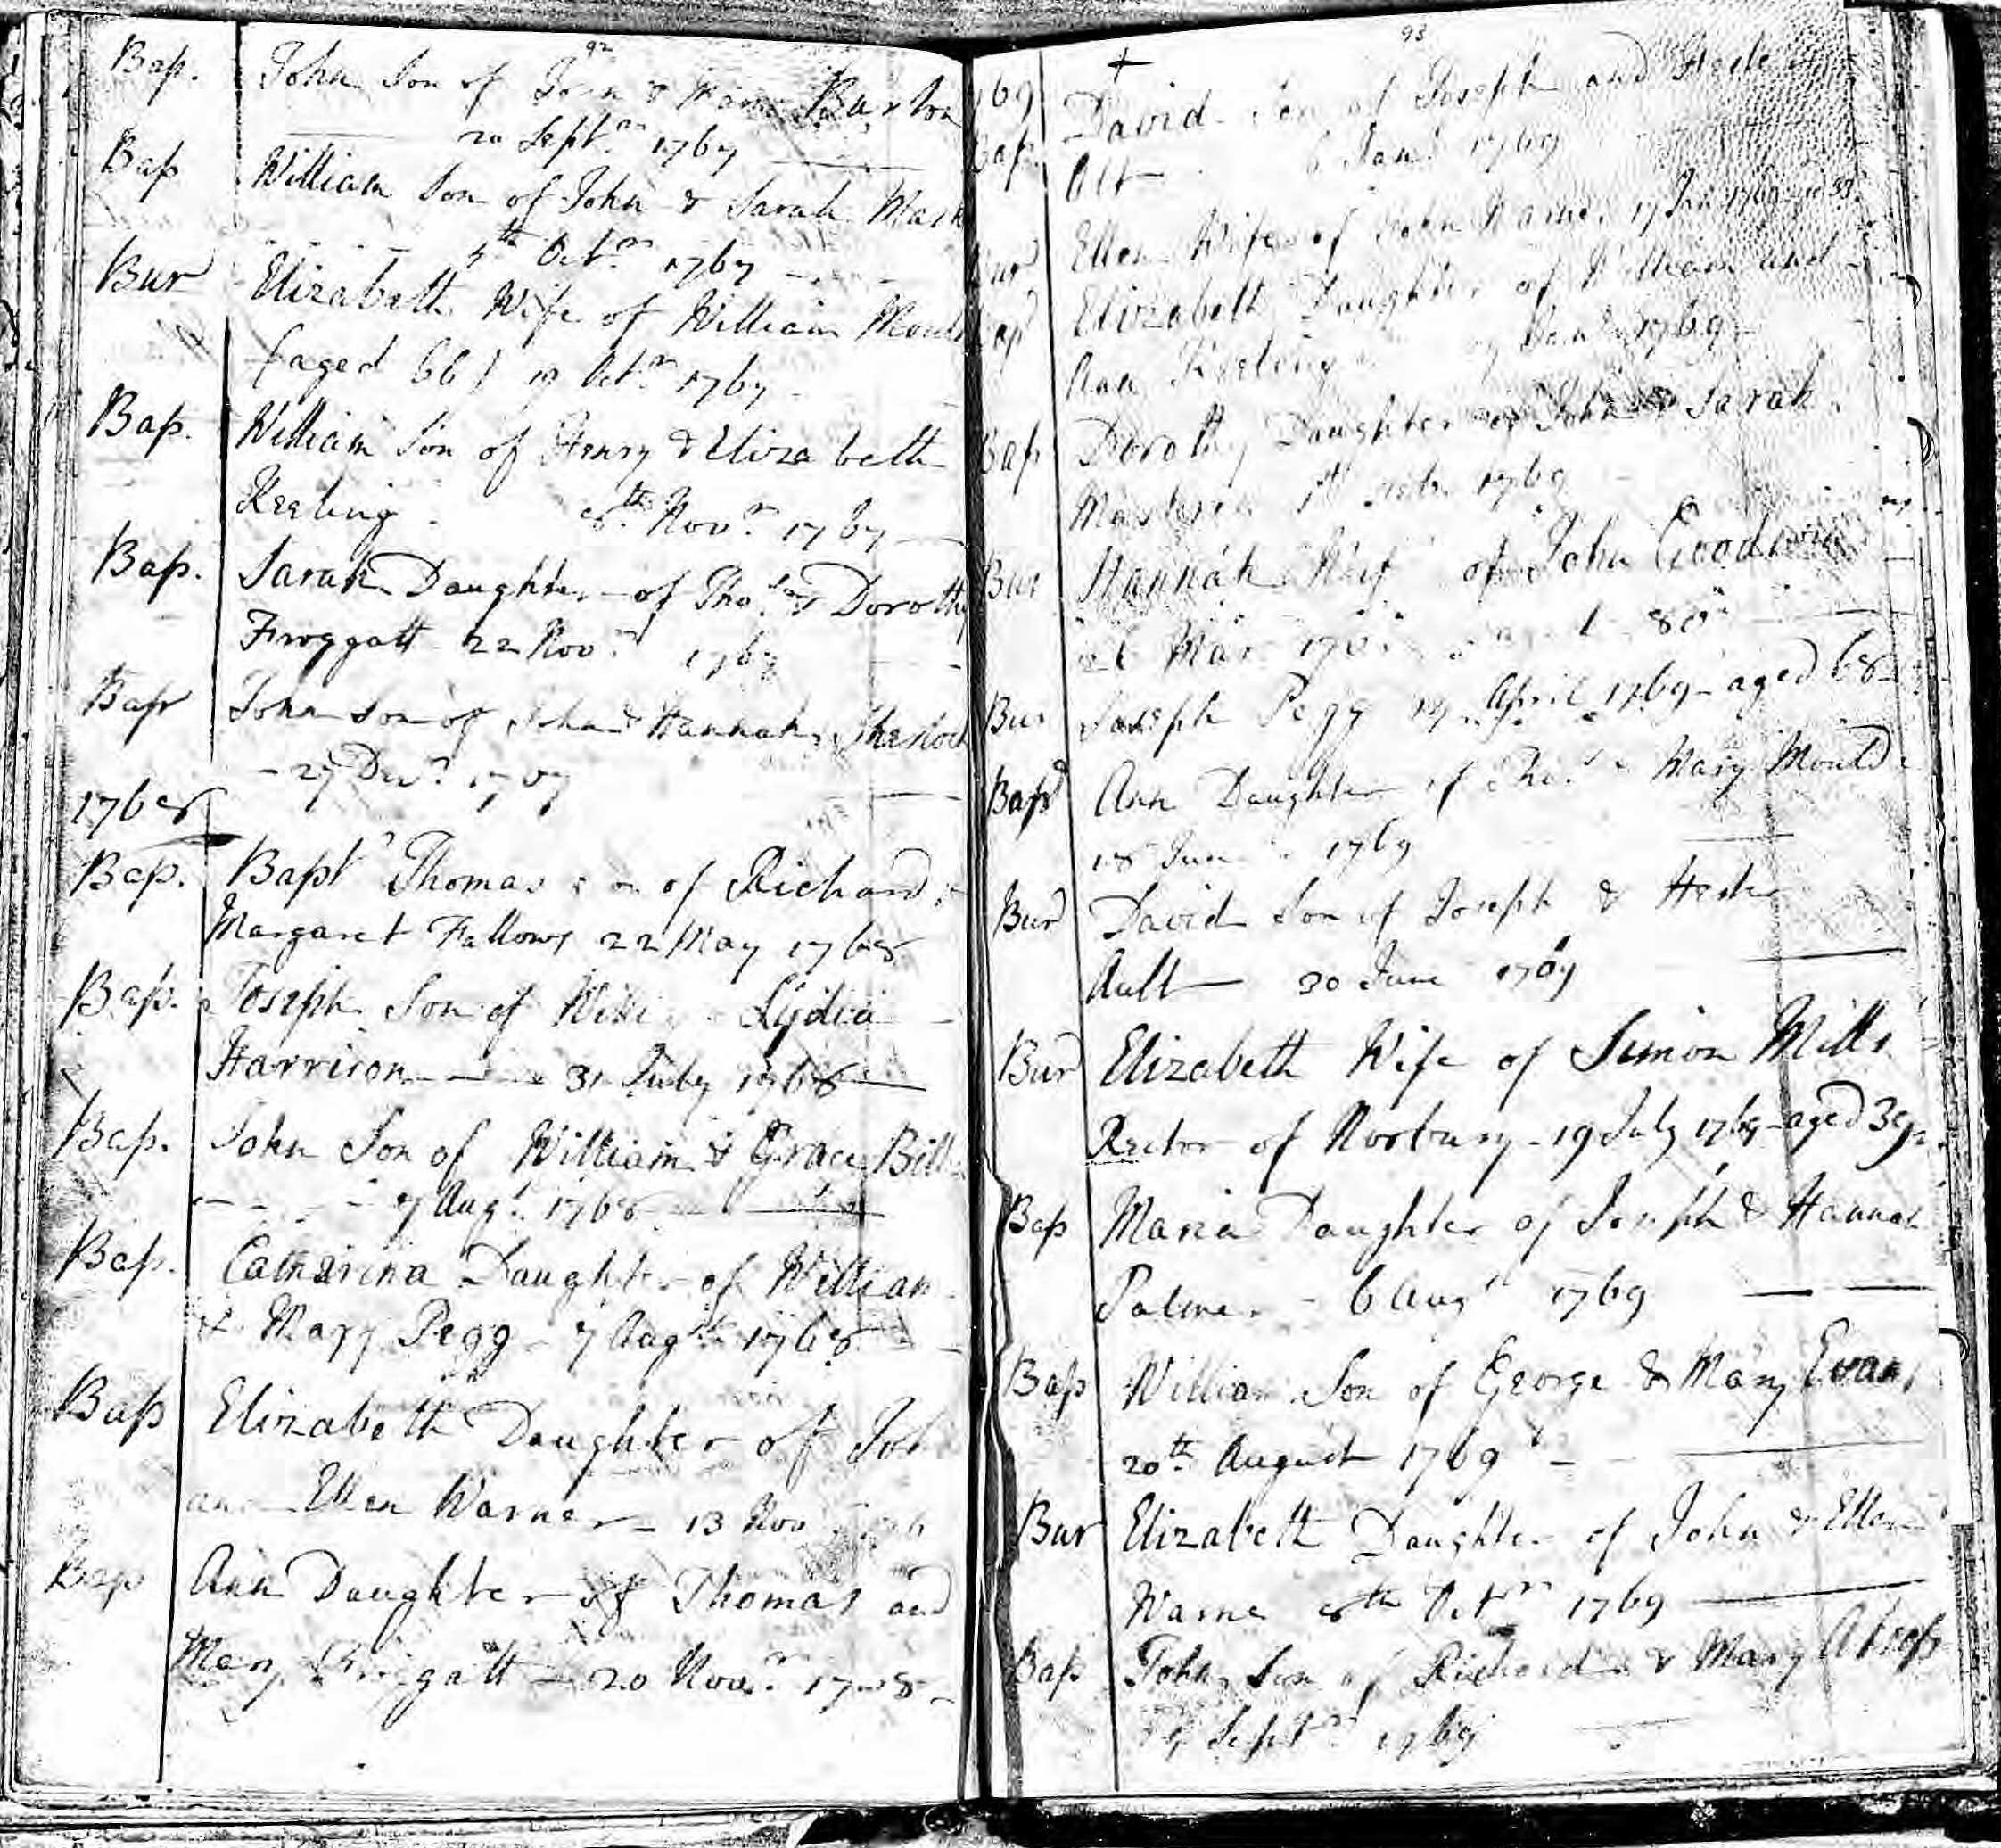 92
Bap. John Son of John & Burton
20 Septr 1767
Bap William Son of John & Sarah
5th Octr 1767
Bur Elizabeth Wife of William
(aged 66) 19 Octr 1767
Bap. William Son of Henry & Elizabeth
Keeling 8th Novr 1767
Bap. Sarah Daughter of Thos & Dorothy
Froggatt 22 Novr 1767
Bap John Son of John & Hannah Sherlock
27 Decr 1767
1768
Bap. Bapt Thomas son of Richard &
Margaret Fallows 22 May 1768
Bap. Joseph Son of Lydia
Harrison 31 July 1768
Bap. John Son of William & Grace Bill
7 Augt 1768
Bap. Catharina Daughter of William
& Mary Pegg 7 Augt 1768
Bap Elizabeth Daughter of John
and Ellen Warner 13 Novr
Bap Ann Daughter of Thomas and
Mary Froggatt 20 Novr 1768
93
David Son of Joseph and
Bap Olt 6 Janr 1769
Bur Ellen Wife of John 17 Jan 1769
Bap Elizabeth Daughter of William and
Ann Keeling 1769
Bap Dorothy Daughter of John & Sarah
1769
Bur Hannah Wife of John Goodwin
26 Mar aged 80
Bur Joseph Pegg 19 April 1769 aged 68
Bap Ann Daughter of Thos & Mary Mould
18 June 1769
Bur David Son of Joseph & Hester
Ault 30 June 1769
Bur Elizabeth Wife of Simon Mills
Rector of Norbury 19 July 1769 aged 39
Bap Maria Daughter of Joseph & Hannah
Palmer 6 Augt 1769
Bap William Son of George & Mary Evans
20th August 1769
Bur Elizabeth Daughter of John & Ellen
Warner 8th Octr 1769
Bap John Son of Richard & Mary
Septr 1769